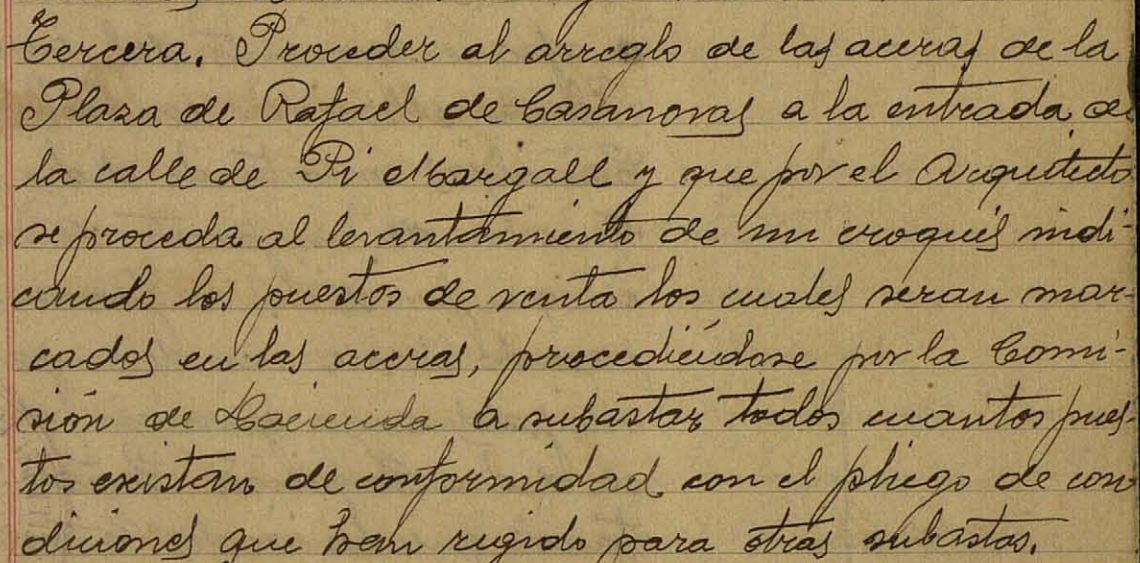 Tercera. Proceder al arreglo de las aceras de la
Plaza de Rafael de Casanovas a la entrada de
la calle de Pi Margall y que por el Arquitecto
se proceda al levantamiento de un croquis indi-
cando los puestos de venta los cuales seran mar-
cados en las aceras, procediéndose por la Comi-
sión de Hacienda a subastar todos cuantos pues-
tos existan de conformidad con el pliego de con
diciones que han regido para otras subastas.